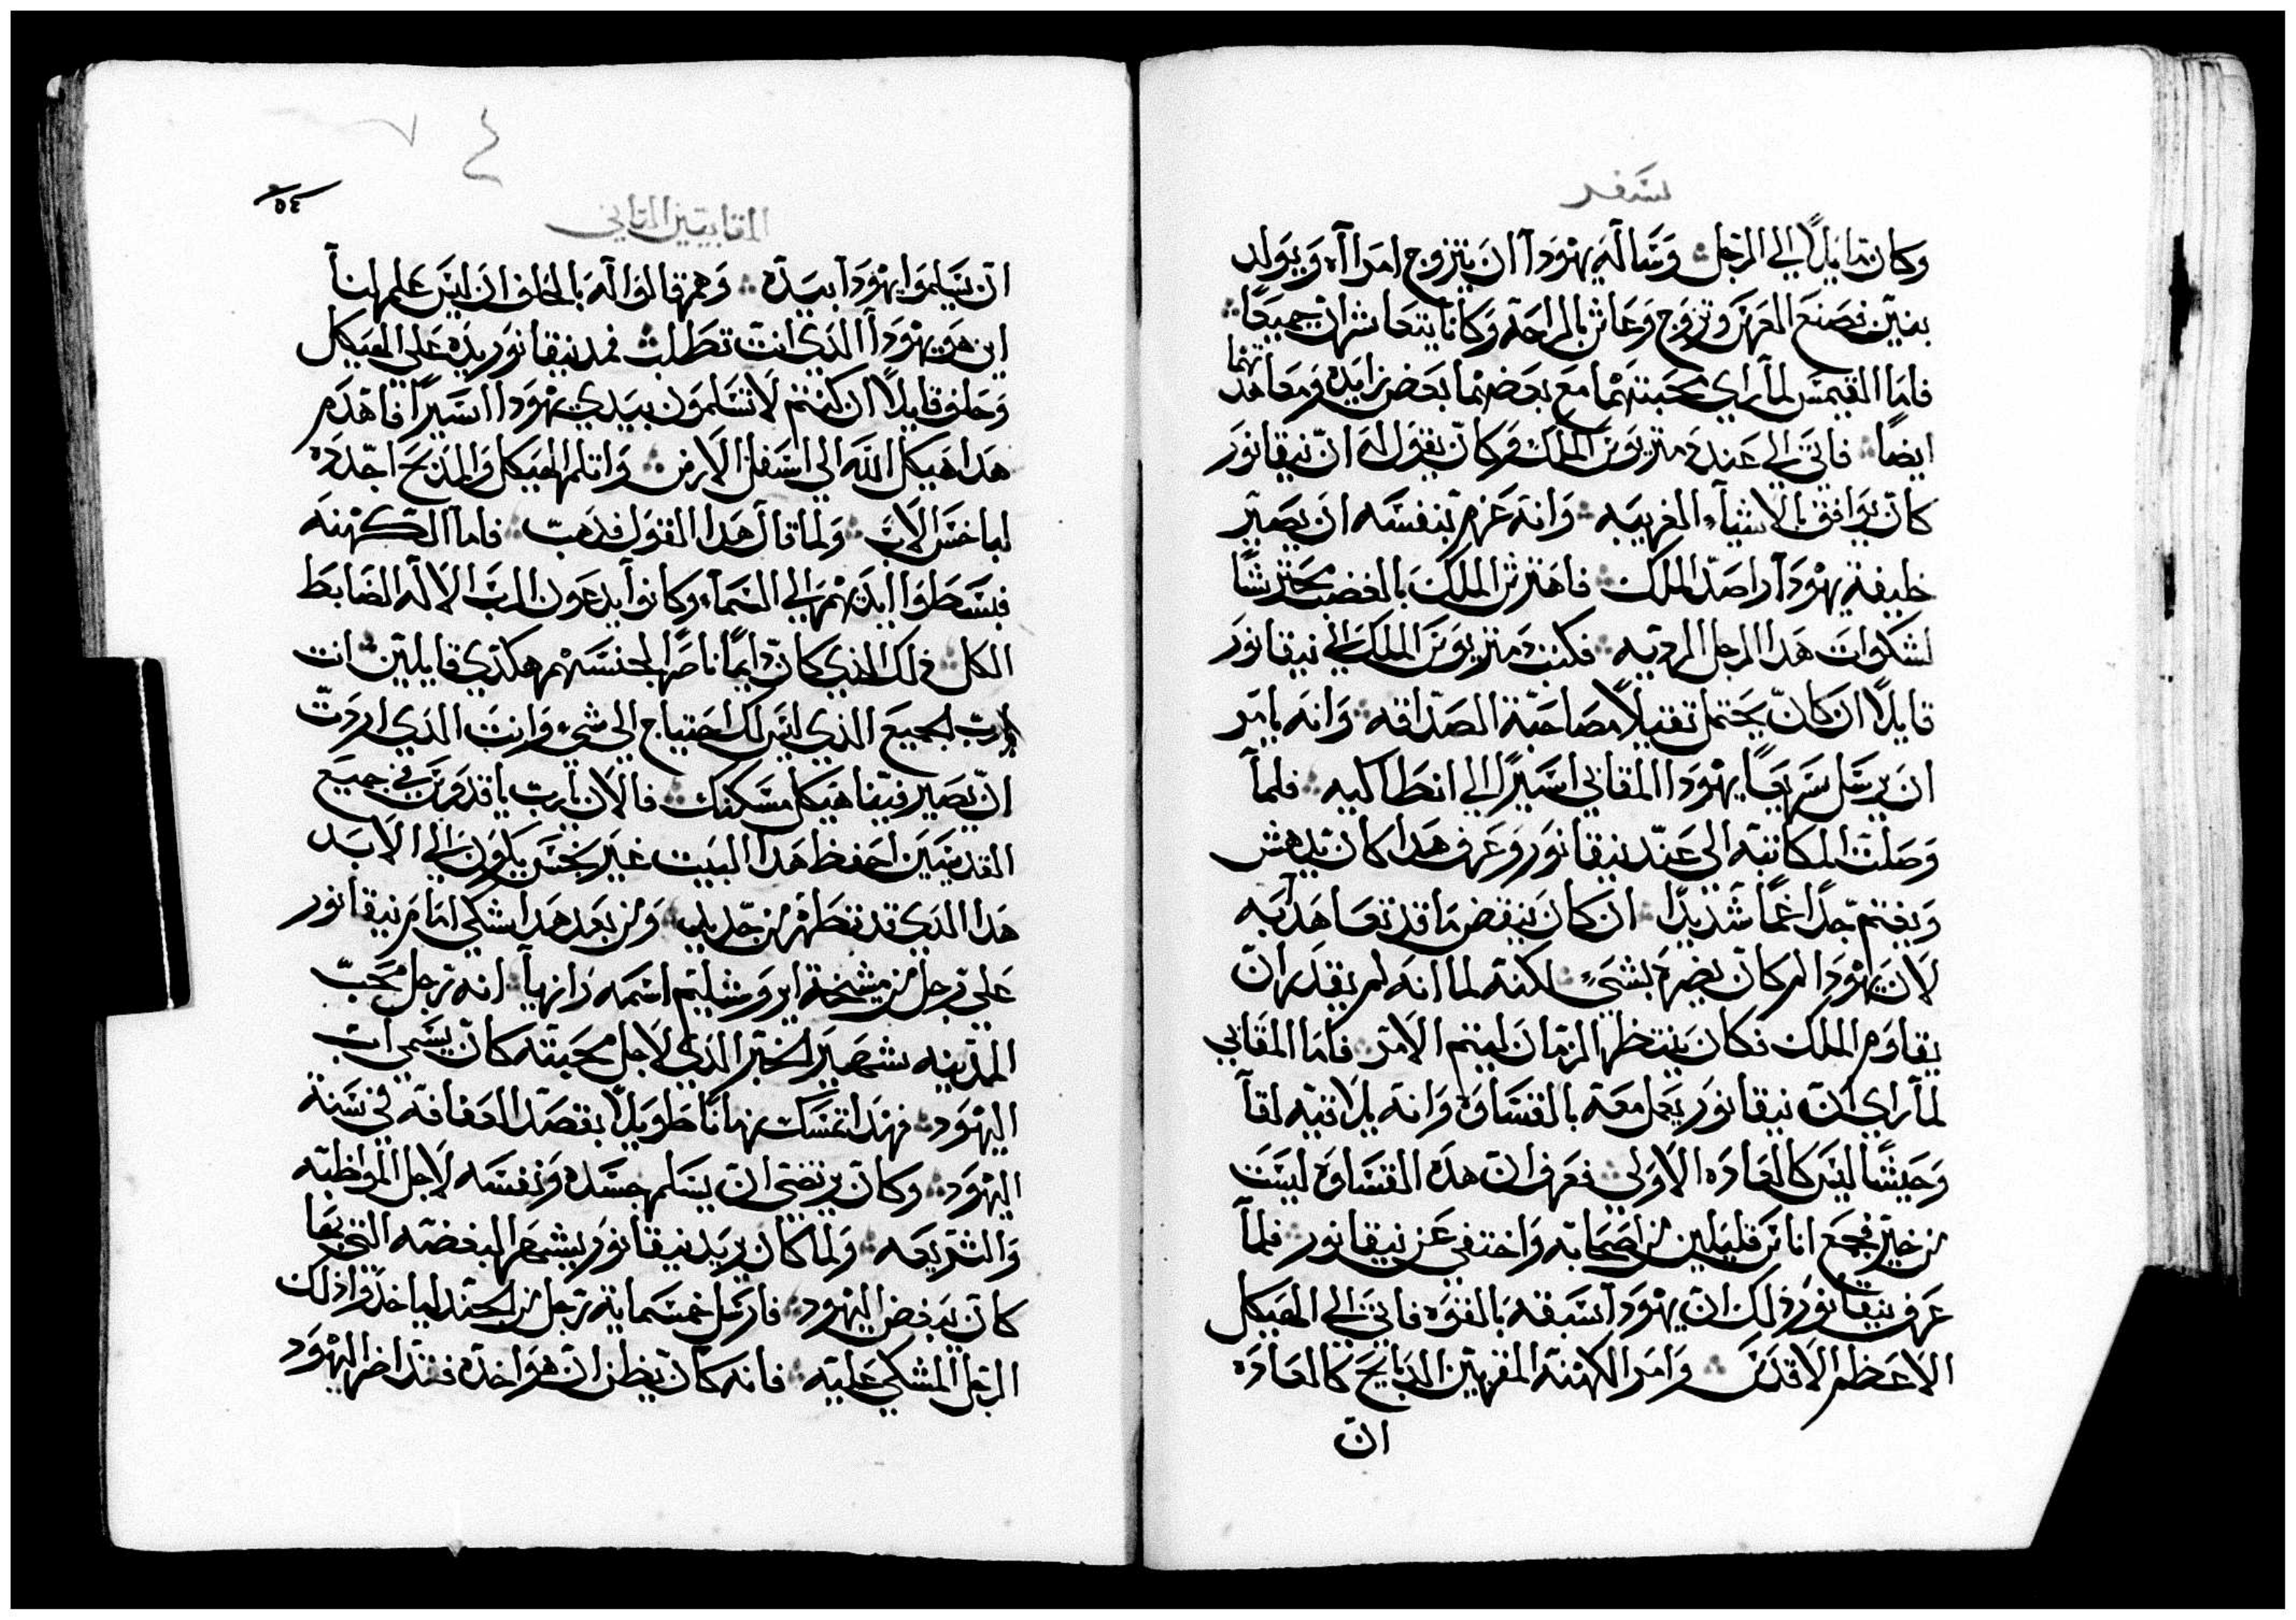 سفر
وكان مايلًا الي الرجل وساله يهودا ان يتزوج امراه ويولد
بنين فصنع العرس وتزوج وعاش بالراحة وكانا يتعاشران جميعًا
فاما القيمس لما راي محبتهما مع بعضهما بعض زايده ومعاهدتهما
ايضًا فاتي الي عند ديمتريوس الملك وكان يقول له ان نيقانور
كان يوافق بالاشياء الغريبه وانه عزم بنفسه ان يصير
خليفة يهودا راصد الملك فاهترش الملك بالغضب محترشًا
لشكوات هذا الرجل الرديه فكتب ديمتريوس الملك الي نيقانور
قايلًا ان كان يحتمل تقتيلًا مصاحبة الصداقه وانه يامر
ان يرسل سريعًا يهودا المقابي اسيرًا الي انطاكيه فلما
وصلت المكاتبه الي عند نيقانور وعرف هذا كان يدهش
ويغتم جدًا غمًا شديدًا ان كان ينقض ما قد تعاهد به
لان يهودا لم كان يضره بشيء لكنه لما انه لم يقدر ان
يقاوم الملك فكان ينتظر الزمان ليتم الامر فاما المقابي
لما راي ان نيقانور يعمل معه بالقساوة وانه يلاقيه لقا
وحيشًا ليس كالعاده الاولي فعرف ان هذه القساوه ليست
من خير فجمع اناس قليلين من اصحابه واختفي عن نيقانور فلما
عرف نيقانور ذلك ان يهودا سبقه بالقوه فاتي الي الهيكل
الاعظم الاقدس وامر الكهنة المقربين الدبايح كالعاده
ان
٥٤
المقابيين التاني
ان يسلموا يهودا بيده وهم قالوا له بالحلف ان ليس علم لنا
اين هو يهودا الذي انت تطلب فمد نيقانور يده علي الهيكل
وحلف قايلًا ان كنتم لا تسلمون بيدي يهودا اسيرًا فاهدم
هدا هيكل الله الي اسفل الارض واتلم الهيكل والمدبح اجدده
لباخس الاب ولما قال هدا القول فدهب فاما الكهنه
فبسطوا ايديهم الي السماء وكانوا يدعون الرب الاله الضابط
الكل ذلك الذي كان دايمًا ناصرًا لجنسهم هكدي قايلين انت
يارب الجميع الذي ليس لك احتياج الي شيء وانت الذي اردت
ان يصير فيفا هيكل مسكنك فالان يارب يا قدوس في جميع
القديسين احفظ هدا البيت غير نجس يكون الي الابد
هدا الذي قد تطهر من جديد ومن بعد هدا شكي امام نيقانور
علي رجل من مشيخة ايروشليم اسمه رازيا انه رجل محب
المدينه شهير الخبر الذي لاجل محبته كان يسمي اب
اليهود فهدا تمسك زمانًا طويلًا بقصد العفافة في سنة
اليهود وكان يرتضي ان يسلم جسده ونفسه لاجل المواظبه
والشريعه ولما كان يريد نيقانور يشهر البغضه التي بها
كان يبغض اليهود فارسل خمسماية رجل من الجند لياخدوا ذلك
الرجل المشكي عليه فانه كان يظن ان هو اخده فتداضر اليهود